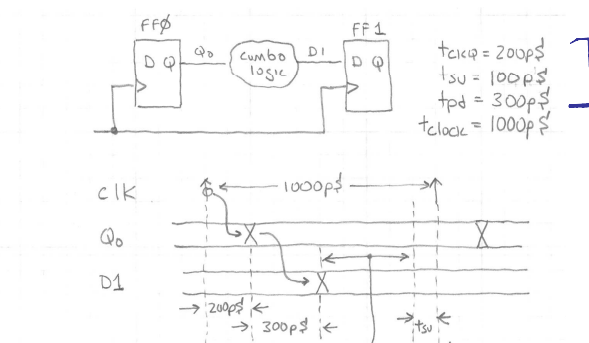 FFØ
FF1
D Q
Q₀
cumbo logic
D1
D Q
tclkQ = 200p$
tsu = 100p$
tpd = 300p$
tclock = 1000p$
clk
1000p$
Q₀
D1
200p$
300p$
tsu